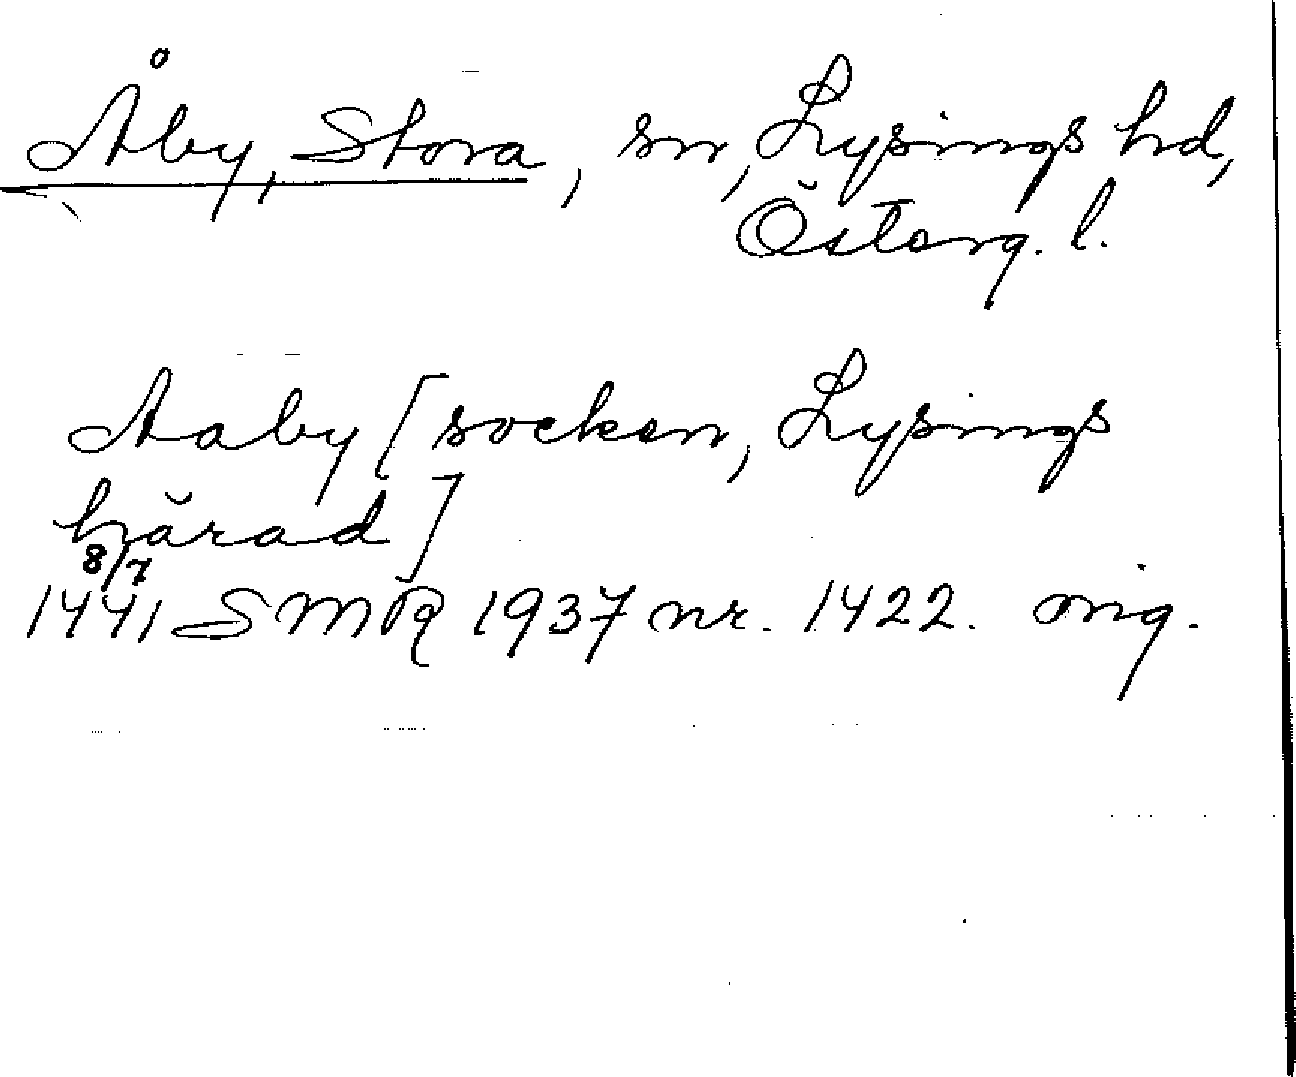 Åby, Stora, sn, Lysings hd,
Österg. l.
Aaby [socken, Lysings
härad]
8/7
1441 SMR 1937 nr. 1422. orig.